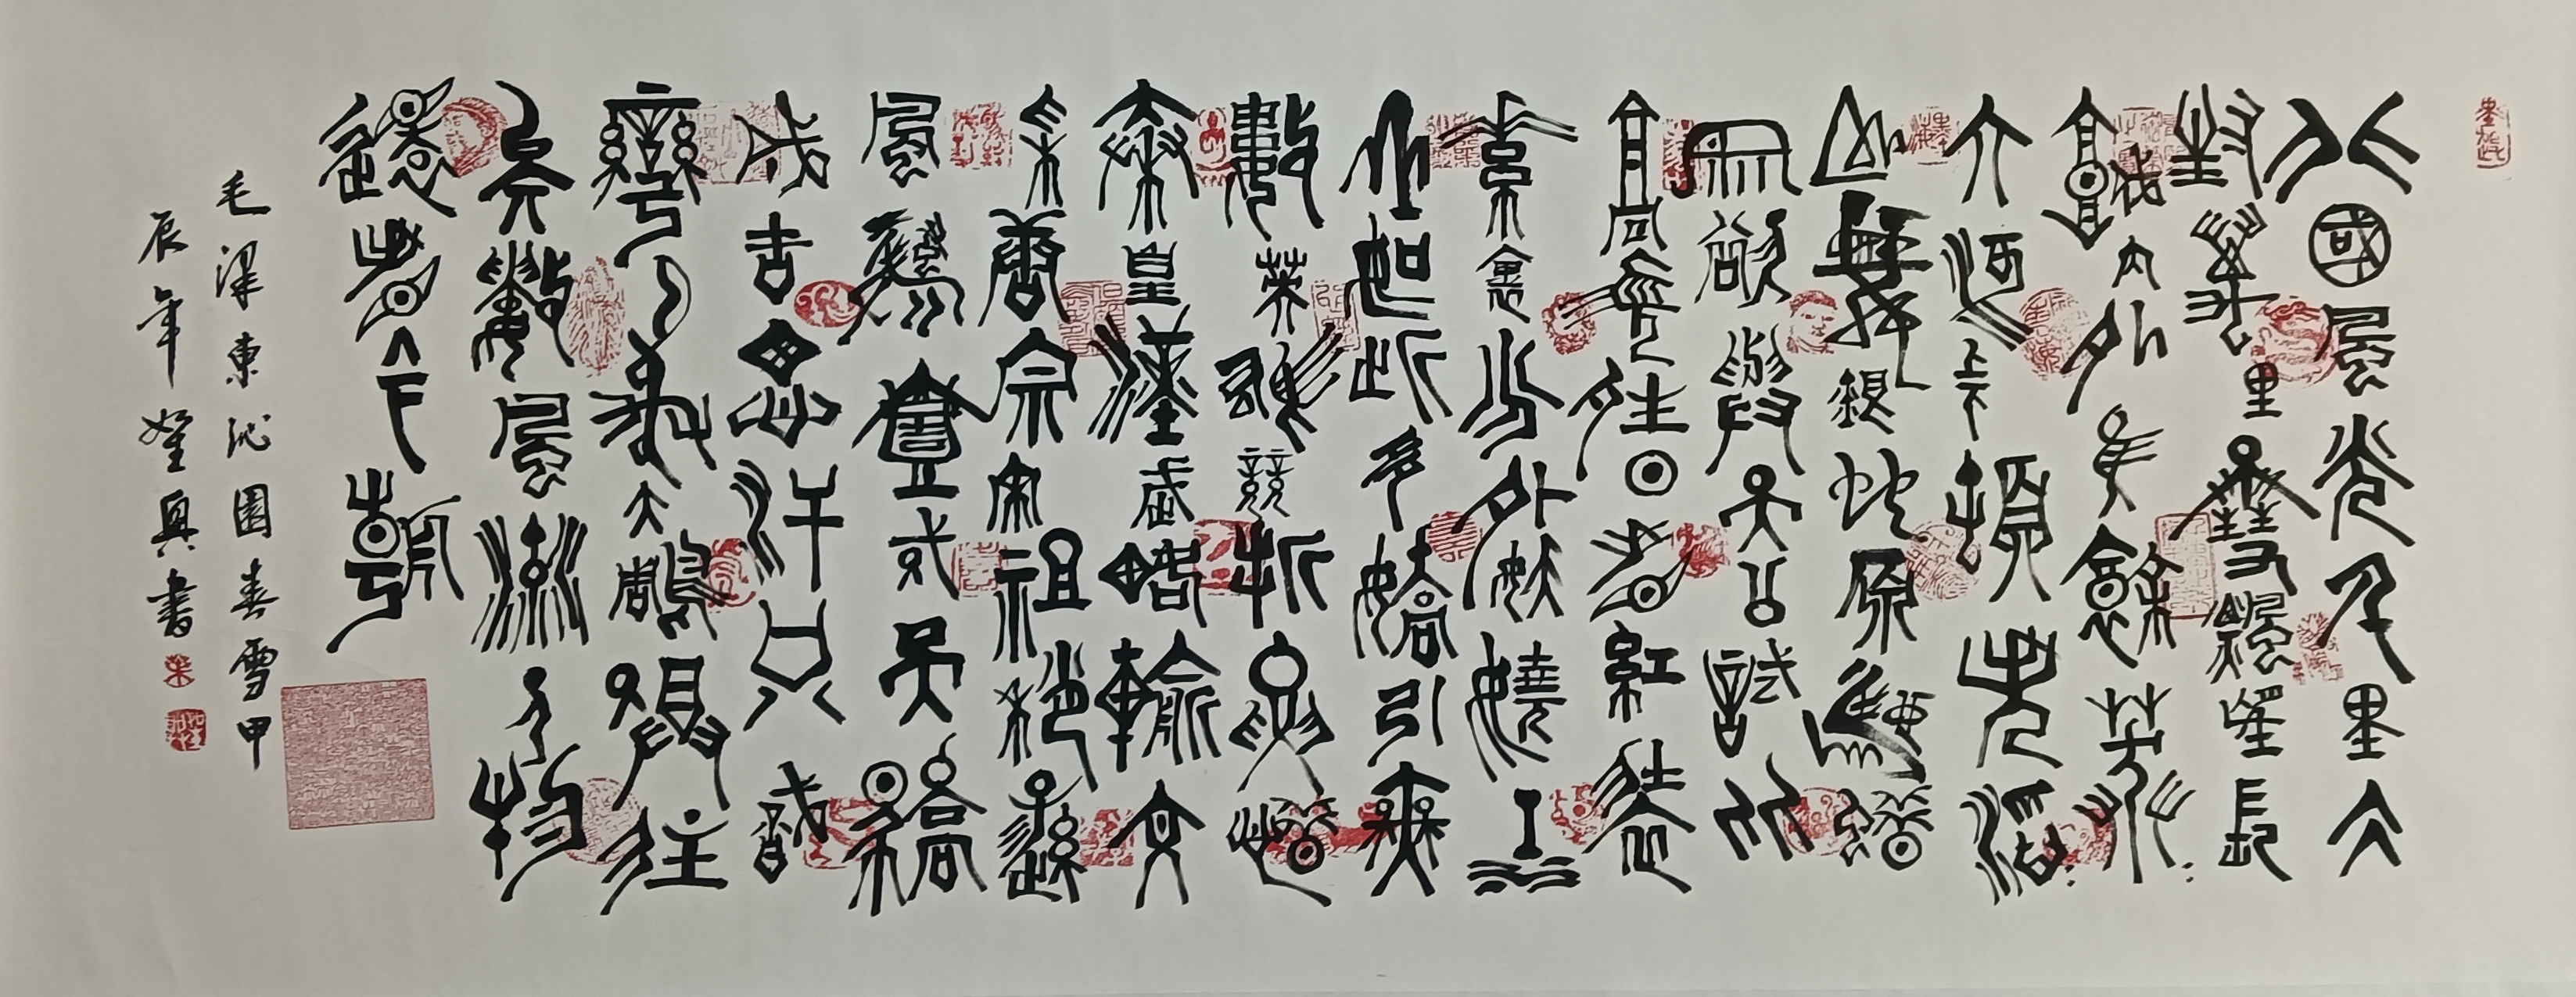 北國風光千里冰
封萬里雪飄望長
城內外惟餘莽〻
大河上下頓失滔〻
山舞銀蛇原馳蠟
象欲與天公試比
高須晴日看紅裝
素裹分外妖嬈江
山如此多嬌引無
數英雄競折腰惜
秦皇漢武略輸文
采唐宗宋祖稍遜
風騷壹代天驕
成吉思汗只識
彎弓射大雕俱往
矣數風流人物
還看今朝
毛澤東沁園春雪甲
辰年書